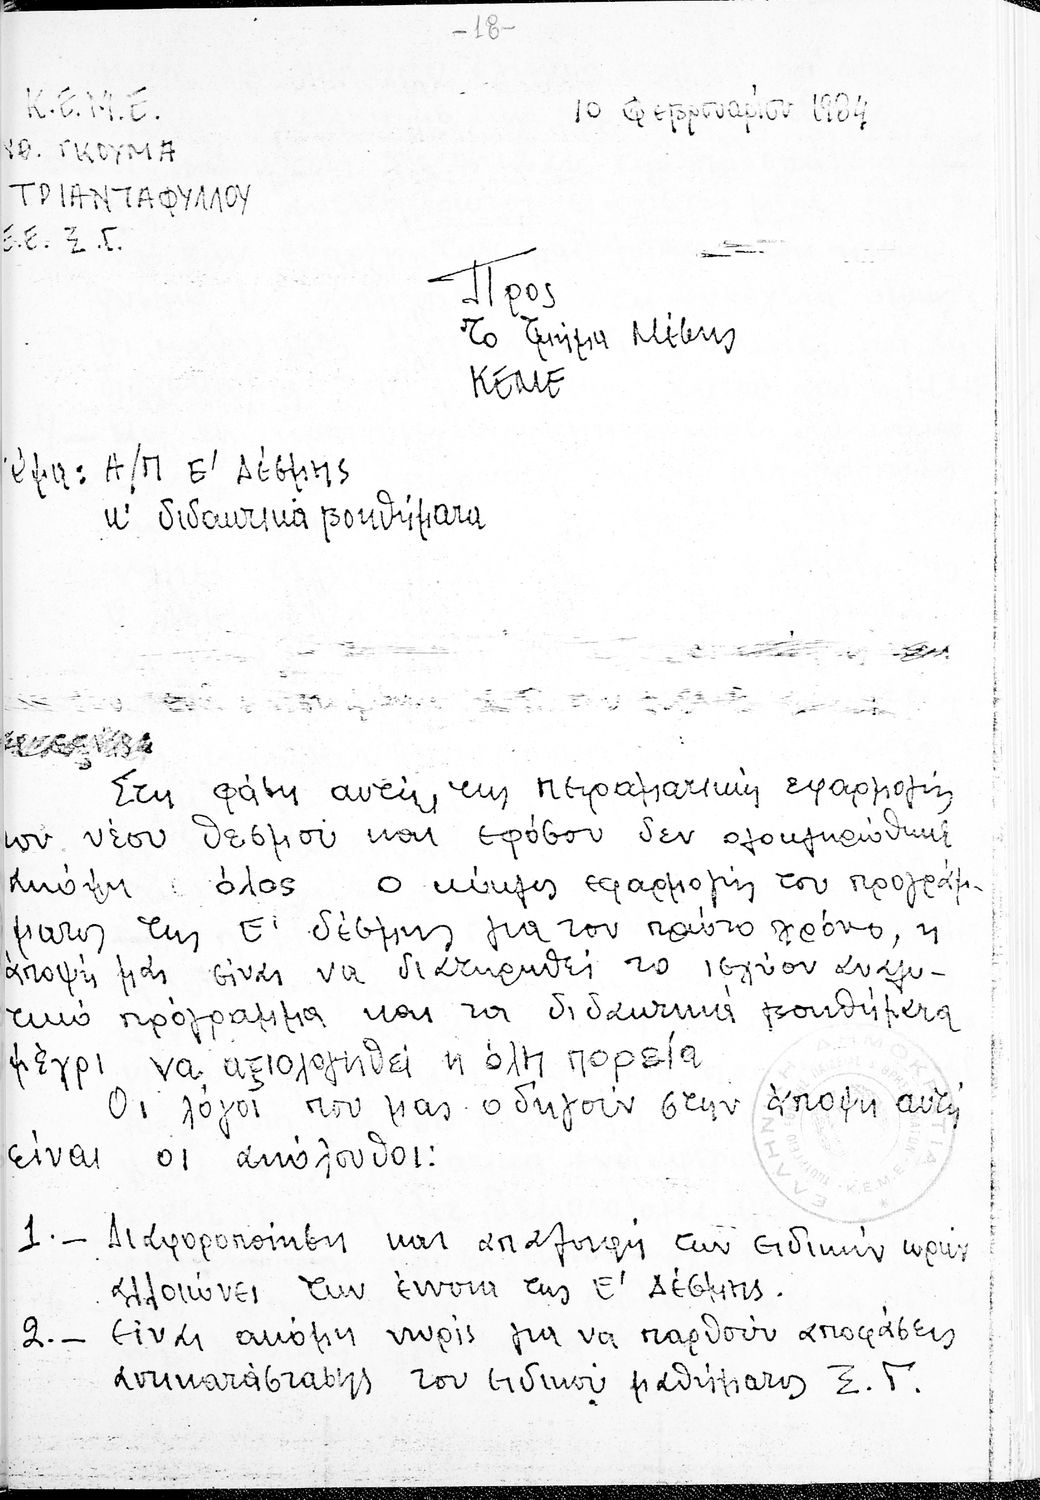 -18-
Κ.Ε.Μ.Ε.
10 Φεβρουαρίου 1984
ΓΚΟΥΜΑ
ΤΡΙΑΝΤΑΦΥΛΛΟΥ
Ε.Ε. Ξ.Γ.
Προς
το τμήμα Μέσης
ΚΕΜΕ
Α/Π Ε' Δέσμης
κ' διδακτικά βοηθήματα
Στη φάση αυτή, της πειραματικής εφαρμογής
του νέου θεσμού και εφόσον δεν ολοκληρώθηκε
ακόμη όλος ο κύκλος εφαρμογής του προγράμ-
ματος της Ε' δέσμης για τον πρώτο χρόνο, η
άποψή μας είναι να διατηρηθεί το ισχύον αναλυ-
τικό πρόγραμμα και τα διδακτικά βοηθήματα
μέχρι να αξιολογηθεί η όλη πορεία
Οι λόγοι που μας οδηγούν στην άποψη αυτή
είναι οι ακόλουθοι:
ΕΛΛΗΝΙΚΗ ΔΗΜΟΚΡΑΤΙΑ
Κ.Ε.Μ.Ε.
1.- Διαφοροποίηση και απαλοιφή των ειδικών ωρών
αλλοιώνει την έννοια της Ε' Δέσμης.
2.- Είναι ακόμη νωρίς για να παρθούν αποφάσεις
αντικατάστασης του ειδικού μαθήματος Ξ.Γ.